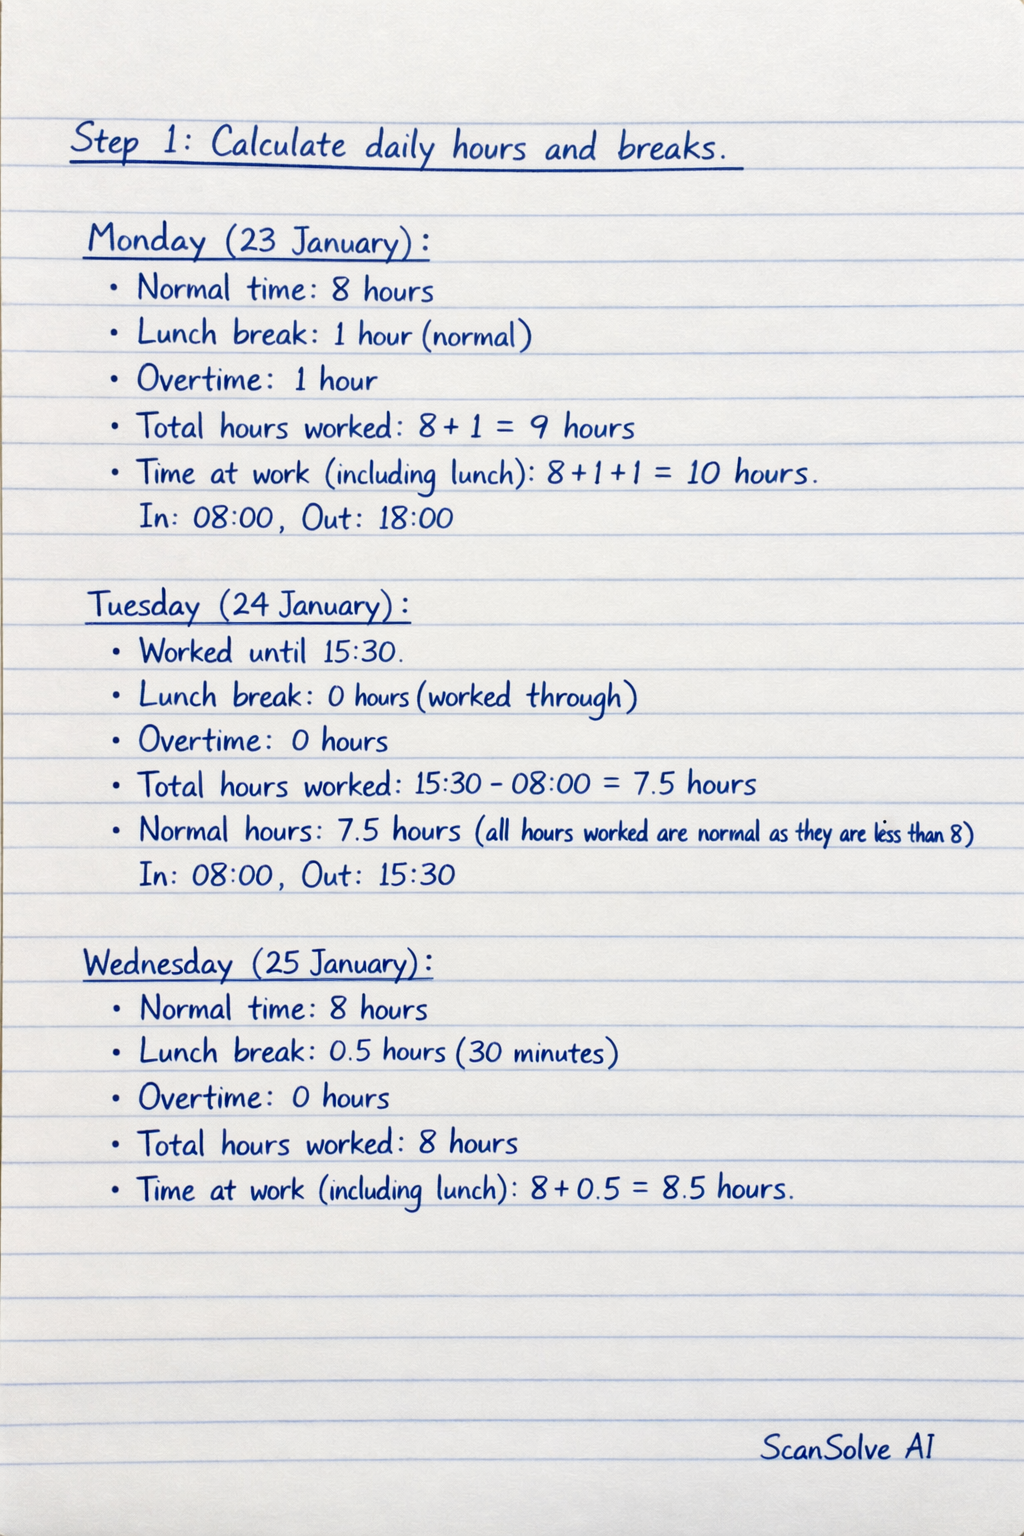 Step 1: Calculate daily hours and breaks.
Monday (23 January):
• Normal time: 8 hours
• Lunch break: 1 hour (normal)
• Overtime: 1 hour
• Total hours worked: 8 + 1 = 9 hours
• Time at work (including lunch): 8 + 1 + 1 = 10 hours.
In: 08:00, Out: 18:00
Tuesday (24 January):
• Worked until 15:30.
• Lunch break: 0 hours (worked through)
• Overtime: 0 hours
• Total hours worked: 15:30 - 08:00 = 7.5 hours
• Normal hours: 7.5 hours (all hours worked are normal as they are less than 8)
In: 08:00, Out: 15:30
Wednesday (25 January):
• Normal time: 8 hours
• Lunch break: 0.5 hours (30 minutes)
• Overtime: 0 hours
• Total hours worked: 8 hours
• Time at work (including lunch): 8 + 0.5 = 8.5 hours.
ScanSolve AI